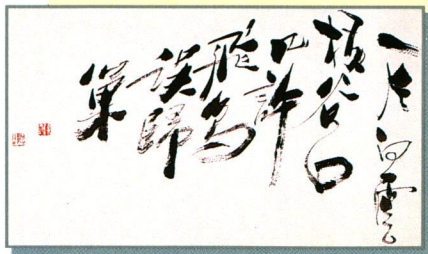 一片白雲
橫谷口
几許
飛鳥
誤歸
巢